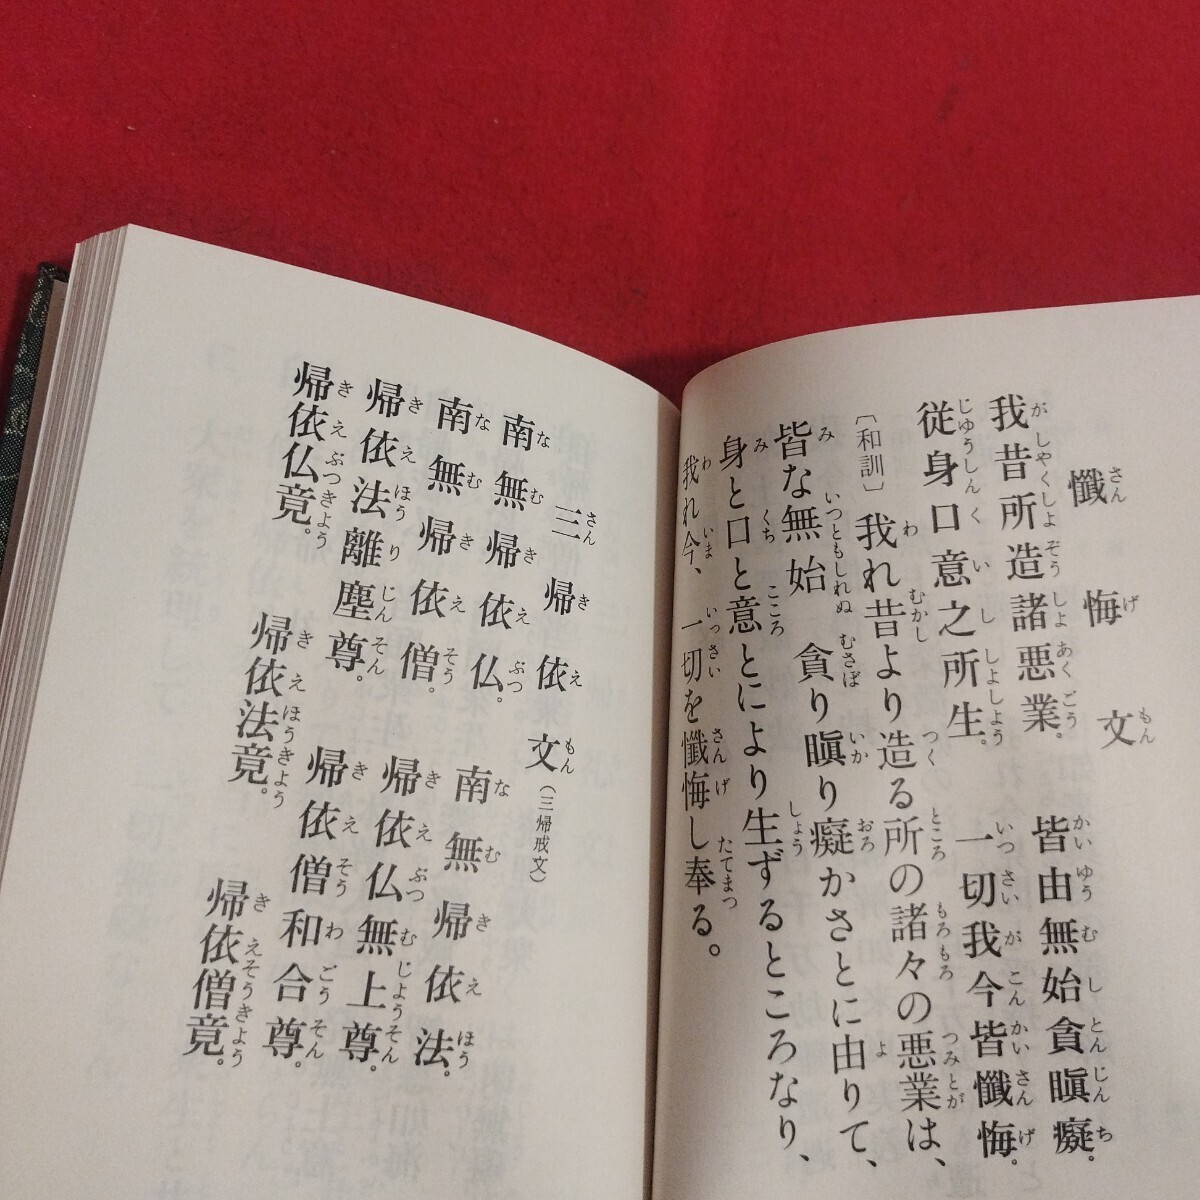 懺悔文
我昔所造諸悪業。 皆由無始貪瞋癡。
従身口意之所生。 一切我今皆懺悔。
〔和訓〕我れ昔より造る所の諸々の悪業は、
皆な無始 貪り瞋り癡かさとに由りて、
身と口と意とにより生ずるところなり、
我れ今、一切を懺悔し奉る。
三帰依文(三帰戒文)
南無帰依仏。 南無帰依法。
南無帰依僧。 帰依仏無上尊。
帰依法離塵尊。 帰依僧和合尊。
帰依仏竟。 帰依法竟。 帰依僧竟。